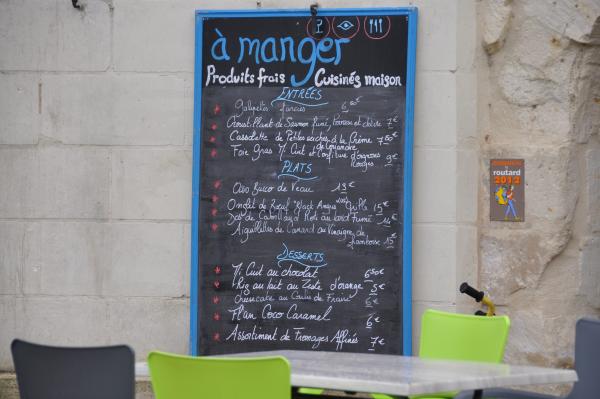 à manger
Produits frais Cuisinés maison
ENTRÉES
Galipettes farcies 6,50€
Croustillant de Saumon Fumé, Poireau et chèvre 7€
Cassolette de Petites seiches à la Crème 7,50€
de Coriandre
Foie Gras Mi Cuit et Confiture d'oignons 9€
Rouges
PLATS
Osso Buco de Veau 13€
Onglet de Bœuf "Black Angus" Grillé 15€
Dos de Cabillaud Rôti au Lard Fumé 14€
Aiguillettes de Canard au Vinaigre de
framboise 15€
DESSERTS
Mi Cuit au chocolat 6,50€
Riz au lait au Zeste d'orange 5€
Cheesecake au Coulis de Fraise 6€
Flan Coco Caramel 6€
Assortiment de Fromages Affinés 7€
routard
2012